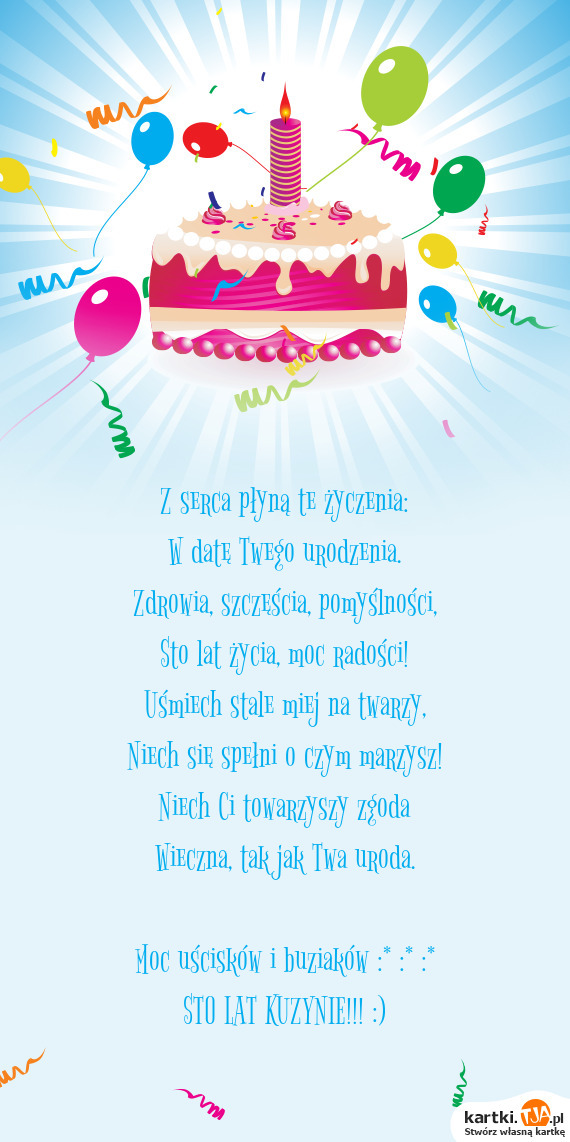 Z serca płyną te życzenia:
W datę Twego urodzenia.
Zdrowia, szczęścia, pomyślności,
Sto lat życia, moc radości!
Uśmiech stale miej na twarzy,
Niech się spełni o czym marzysz!
Niech Ci towarzyszy zgoda
Wieczna, tak jak Twa uroda.
Moc uścisków i buziaków :* :* :*
STO LAT KUZYNIE!!! :)
kartki.TJA.pl
Stwórz własną kartkę